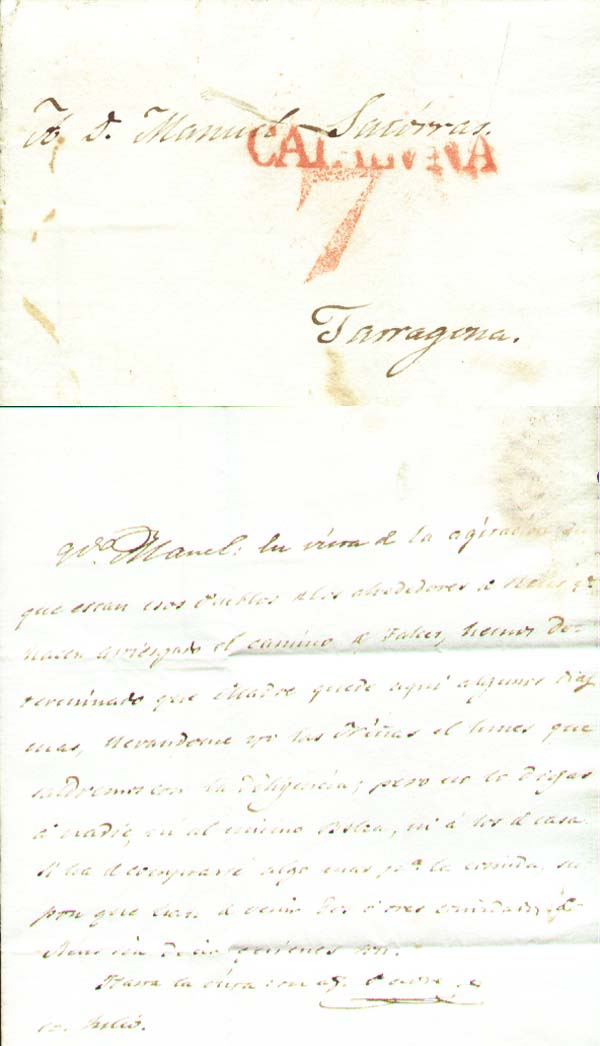 A D. Manuel Satorras.
CATALUÑA
7
Tarragona.
Qdo. Manuel: En vista de la agitación en
que estan esos Pueblos de los alrededores de Reus qe.
hacen arriesgado el camino de Falset, hemos de-
terminado que Madre quede aquí algunos dias
mas, llevandome yo las Niñas el lunes que
saldremos con la diligencia; pero no lo digas
á nadie, ni al mismo, ni á los de casa.
Si ha de comprarse algo mas pa. la comida, su
pon que han de venir dos o tres convidados, de
decir quienes son.
Hasta la vista
Julio.